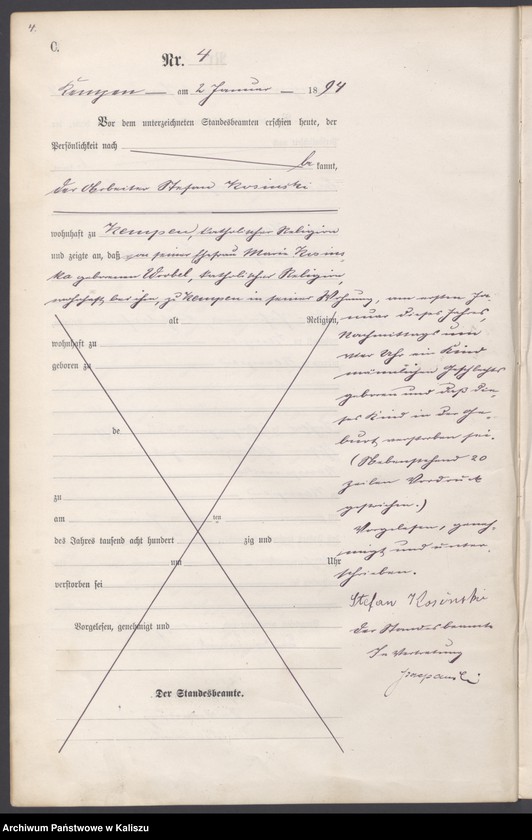 4.
C.
Nr. 4
Kempen am 2 Januar 1894
Vor dem unterzeichneten Standesbeamten erschien heute, der
Persönlichkeit nach
bekannt,
der Arbeiter Stefan Kosinski
wohnhaft zu Kempen, katholischer Religion
und zeigte an, daß von seiner Ehefrau Maria Kosins
ka geborene Wrobel, katholischer Religion,
wohnhaft bei ihm, zu Kempen in seiner Wohnung, am ersten Ja-
nuar dieses Jahres,
Nachmittags um
vier Uhr ein Kind
männlichen Geschlechts
geboren und daß die-
ses Kind in der Ge-
burt verstorben sei.
(Nebenstehend 20
Zeilen Vordruck
gestrichen.)
Vorgelesen, geneh-
migt und unter-
schrieben.
Stefan Kosinski
Der Standesbeamte
In Vertretung
alt Religion,
wohnhaft zu
geboren zu
de
zu
am ten
des Jahres tausend acht hundert zig und
um Uhr
verstorben sei
Vorgelesen, genehmigt und
Der Standesbeamte.
Archiwum Państwowe w Kaliszu